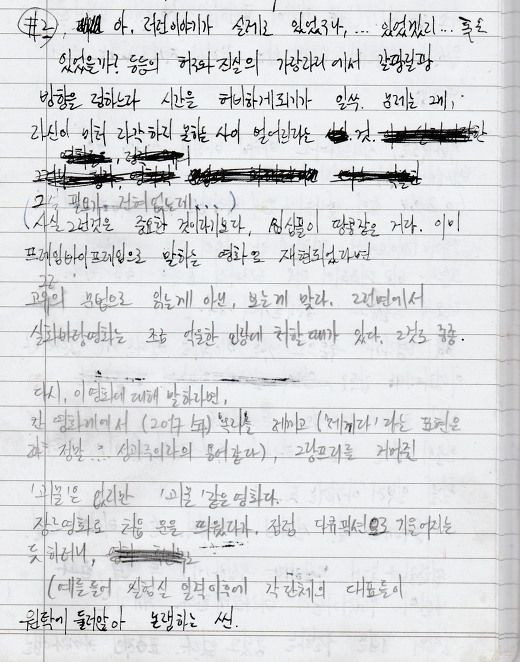 #3, 아, 저런이야기가 실제로 있었구나, ... 있었겠지... 혹은
있었을까? 등등의 허구와 진실의 가랑이 에서 갈팡질팡
방향을 정하느라 시간을 허비하게되기가 일쑤. 문제는 그게,
자신이 미처 다 하지 못하는 사이 일어난다는 것.
그럴 필요가 전혀 없는데...)
(사실 그런것은 중요한 것이라기보다, 심심풀이 땅콩같은 거다. 이미
프레임바이프레임으로 말하는 영화로 재현되었다면
그
고유의 문법으로 읽는게 아닌, 보는게 맞다. 그런면에서
실화바탕영화는 조금 억울한 입장에 처할때가 있다. 그것도 종종.
다시, 이영화에 대해 말하라면,
칸 영화제에서 (2017년) 를 제끼고 ('제끼다'라는 표현은
정말... 성과주의자의 용어같다), 그랑프리를 거머쥔
'괴물'은 없지만 '괴물'같은영화다.
장르영화로 처음 문을 띄웠다가, 점점 다큐픽션으로 기울어지는
듯 하더니,
(예를들어 실험실 습격이후에 각 단체의 대표들이
원탁에 둘러앉아 논쟁하는 씬.